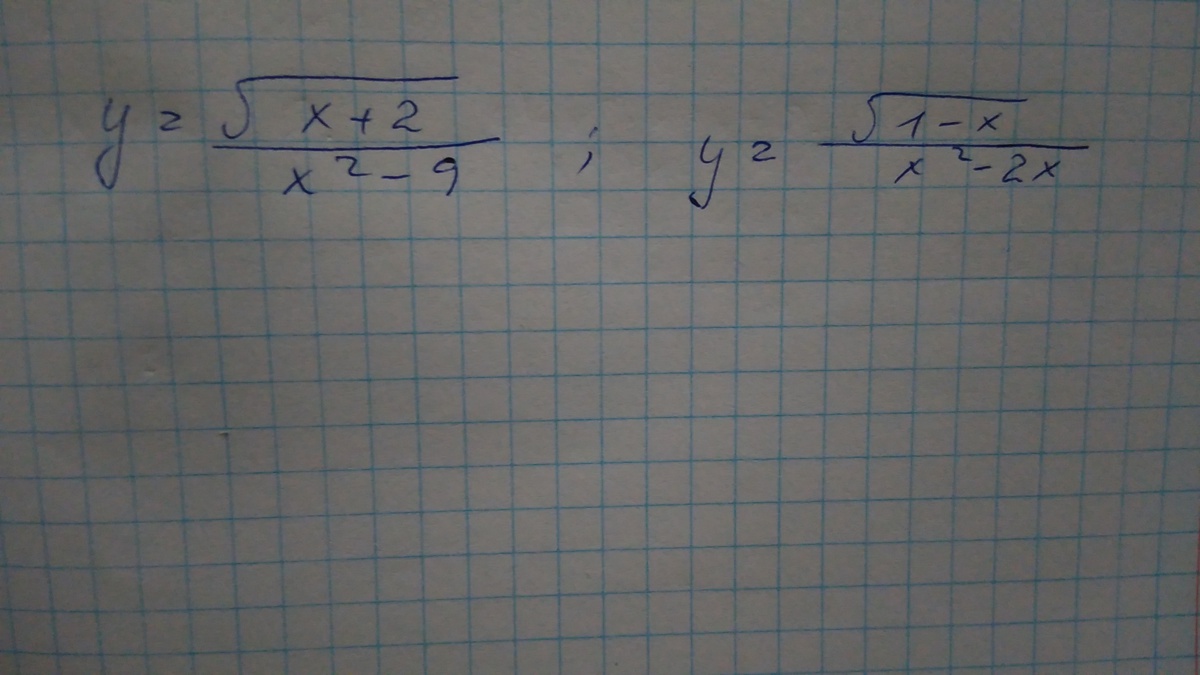 y = √(x+2) / (x² - 9) ; y = √(1-x) / (x² - 2x)